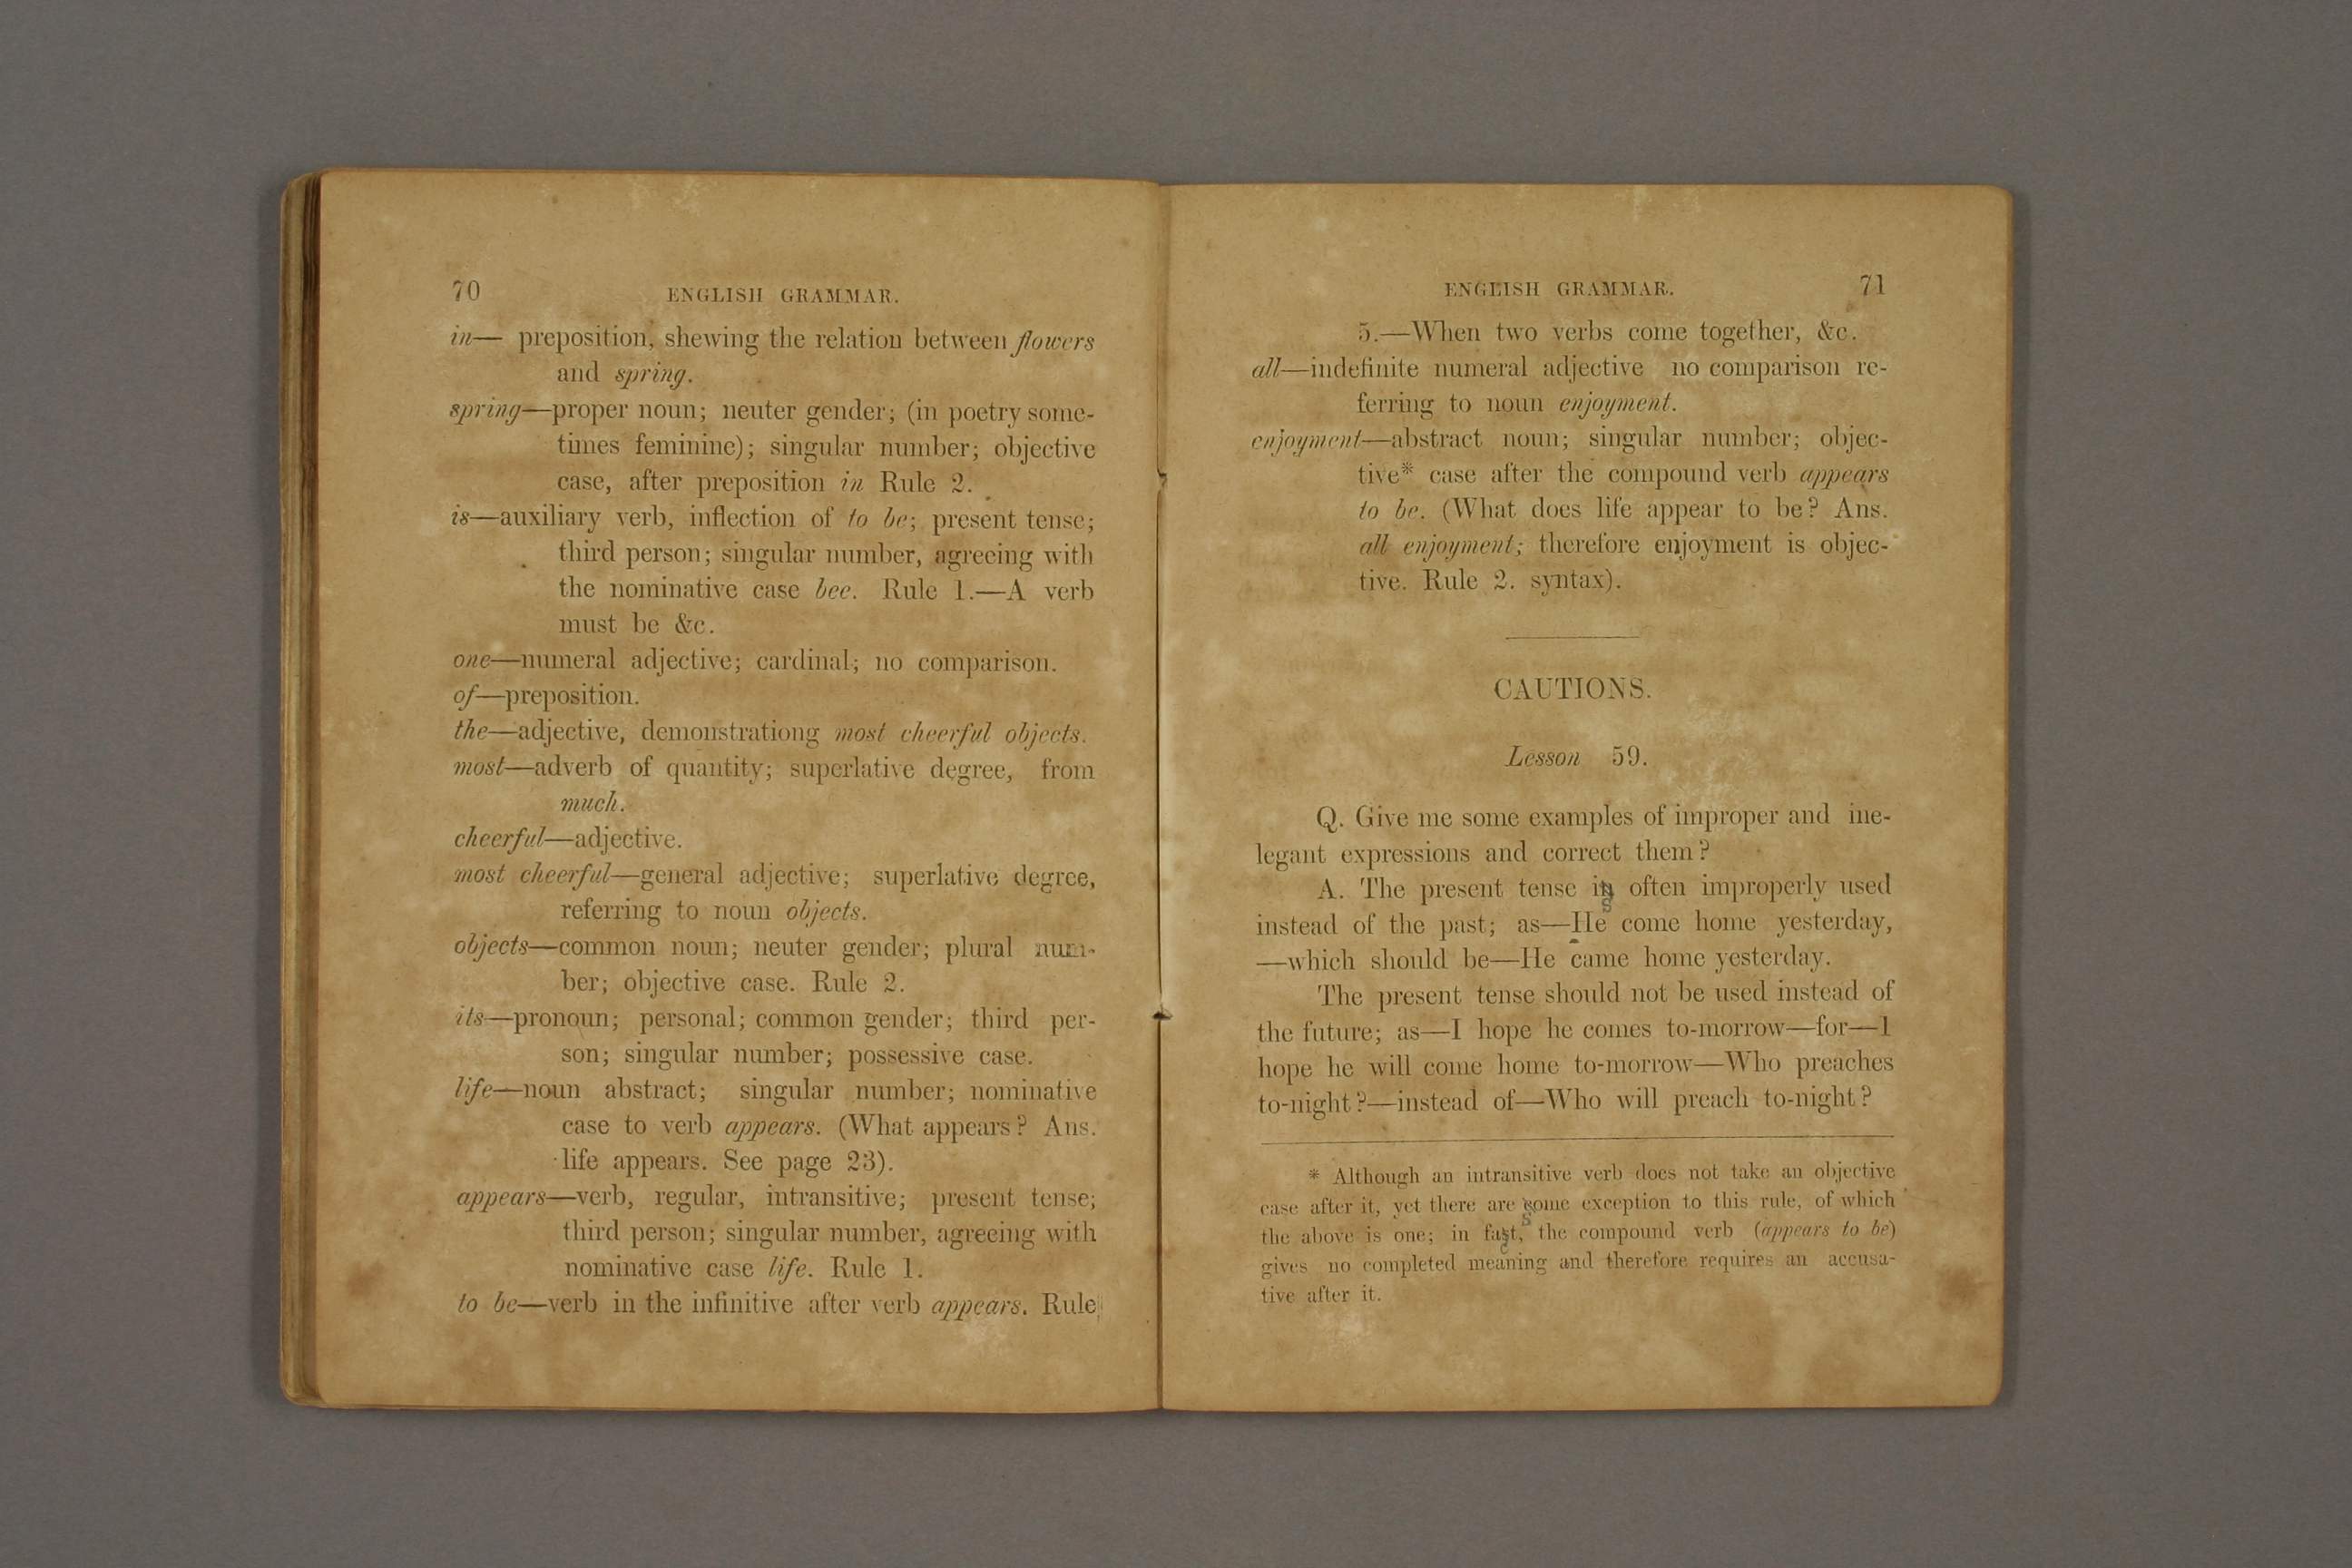 70
ENGLISH GRAMMAR.
in— preposition, shewing the relation between flowers
and spring.
spring—proper noun; neuter gender; (in poetry some-
times feminine); singular number; objective
case, after preposition in Rule 2.
is—auxiliary verb, inflection of to be; present tense;
third person; singular number, agreeing with
the nominative case bee. Rule 1.—A verb
must be &c.
one—numeral adjective; cardinal; no comparison.
of—preposition.
the—adjective, demonstrationg most cheerful objects.
most—adverb of quantity; superlative degree, from
much.
cheerful—adjective.
most cheerful—general adjective; superlative degree,
referring to noun objects.
objects—common noun; neuter gender; plural num-
ber; objective case. Rule 2.
its—pronoun; personal; common gender; third per-
son; singular number; possessive case.
life—noun abstract; singular number; nominative
case to verb appears. (What appears? Ans.
life appears. See page 23).
appears—verb, regular, intransitive; present tense;
third person; singular number, agreeing with
nominative case life. Rule 1.
to be—verb in the infinitive after verb appears. Rule
ENGLISH GRAMMAR.
71
5.—When two verbs come together, &c.
all—indefinite numeral adjective no comparison re-
ferring to noun enjoyment.
enjoyment—abstract noun; singular number; objec-
tive* case after the compound verb appears
to be. (What does life appear to be? Ans.
all enjoyment; therefore enjoyment is objec-
tive. Rule 2. syntax).
CAUTIONS.
Lesson 59.
Q. Give me some examples of improper and ine-
legant expressions and correct them?
A. The present tense is often improperly used
instead of the past; as—He come home yesterday,
—which should be—He came home yesterday.
The present tense should not be used instead of
the future; as—I hope he comes to-morrow—for—I
hope he will come home to-morrow—Who preaches
to-night?—instead of—Who will preach to-night?
* Although an intransitive verb does not take an objective
case after it, yet there are some exception to this rule, of which
the above is one; in fact, the compound verb (appears to be)
gives no completed meaning and therefore requires an accusa-
tive after it.